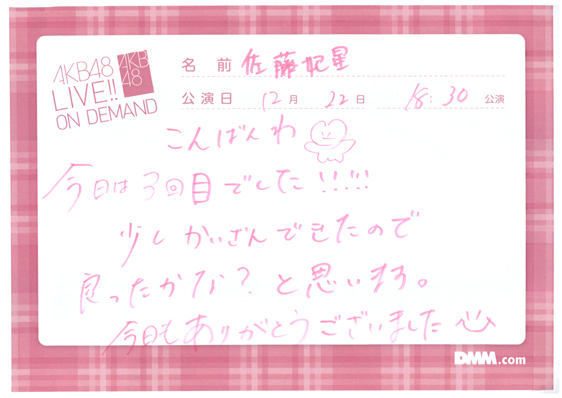 AKB48
LIVE!!
ON DEMAND
AKB
48
名 前 佐藤妃星
公演日 12月 22日 18:30 公演
こんばんわ
今日は3回目でした!!!!!
少しかいざんできたので
良ったかな?と思います。
今日もありがとうございました
DMM.com